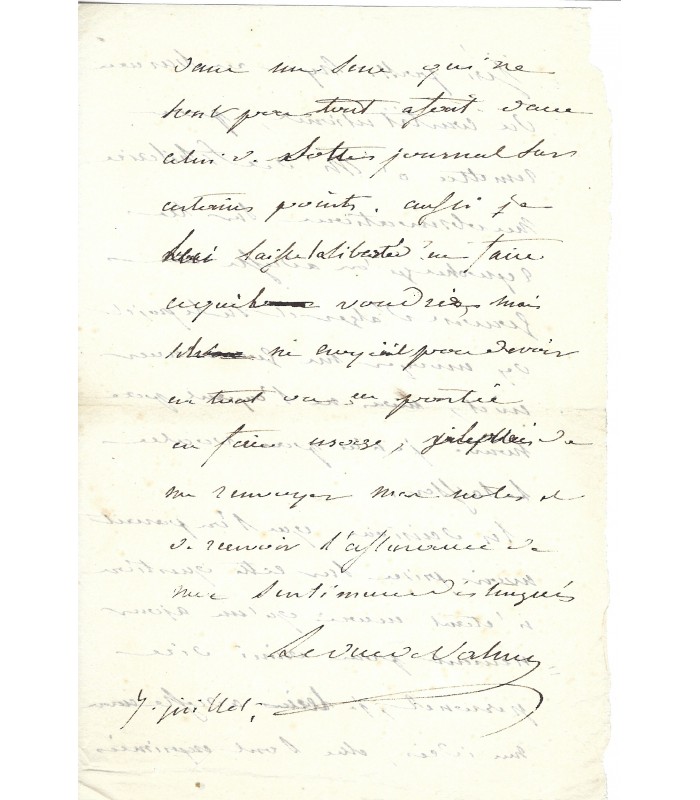 dans un sens qui ne
sont pas tout à fait dans
celui de votre journal sur
certains points. aussi je
laisse la liberté d'en faire
ce qu'il voudrais mais
ne croyait pas devoir
en tout ou en partie
en faire usage, je le prie de
me renvoyer mes notes et
de recevoir l'assurance de
mes sentimens distingués
Le duc de Valmy
7 juillet